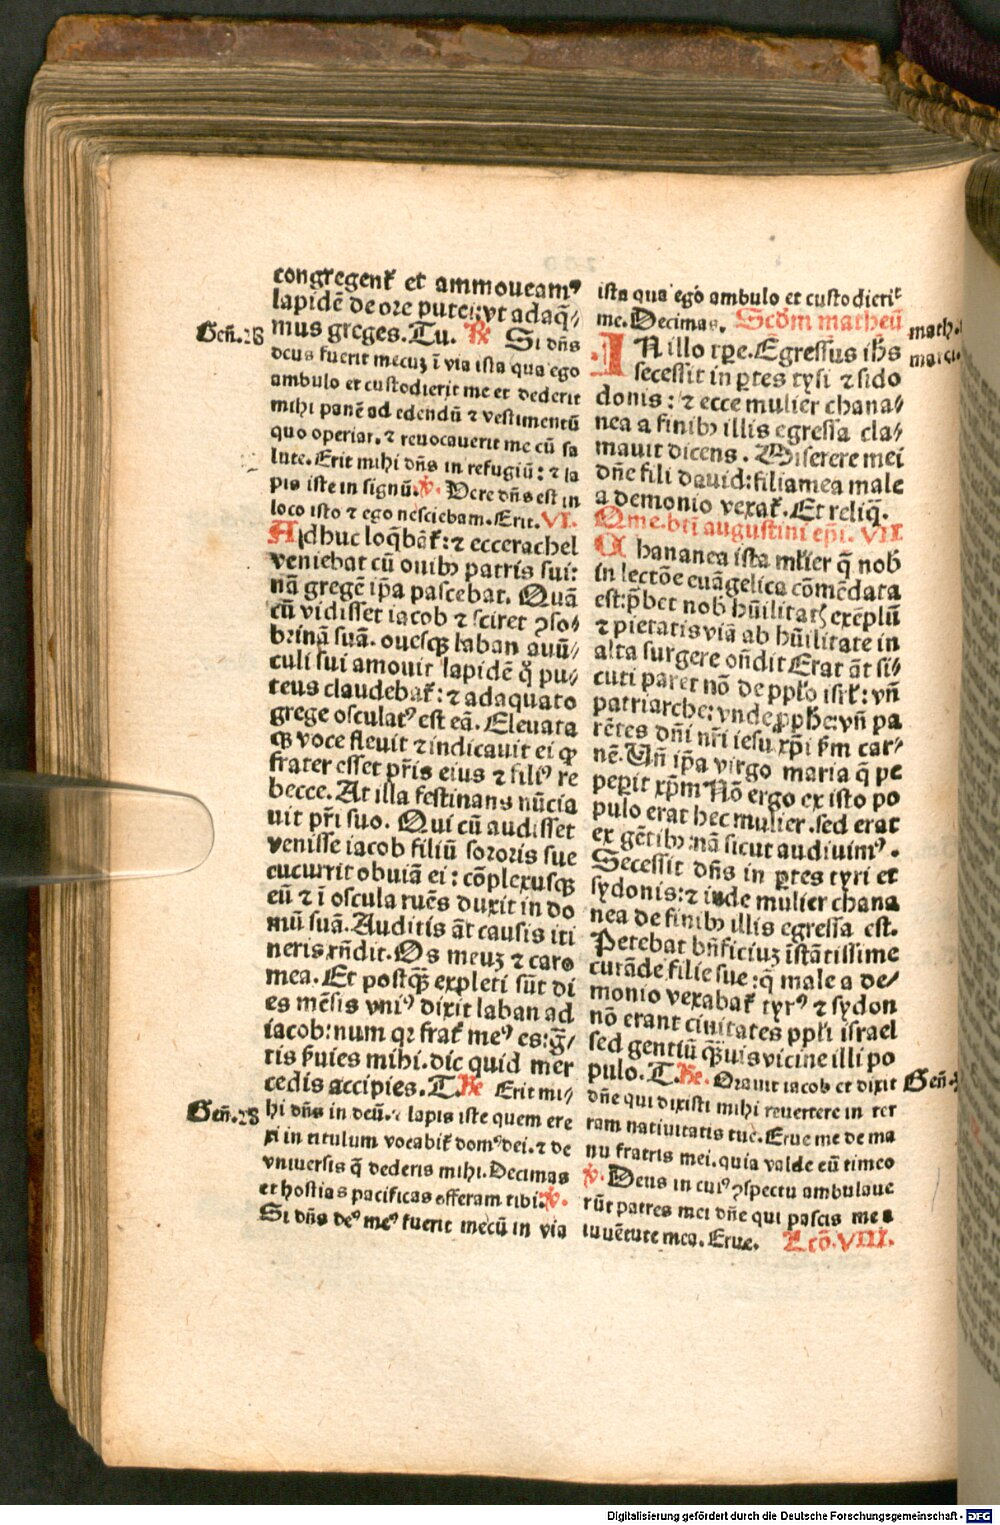 congregent᷑ et ammoueamꝰ
lapidē de ore putei: vt adaq̄⸗
mus greges. Tu. ℟ Si dn̄s
Gen̄.28
deus fuerit mecuꝫ ī via ista qua ego
ambulo et custodierit me et dederit
mihi panē ad edendū ⁊ vestimentū
quo operiar. ⁊ reuocauerit me cū sa
lute. Erit mihi dn̄s in refugiū: ⁊ la
pis iste in signū. ℣. Uere dn̄s est in
loco isto ⁊ ego nesciebam. Erit. VI.
Adhuc loq̄bat᷑: ⁊ ecce rachel
veniebat cū ouibꝰ patris sui:
nā gregē ip̄a pascebat. Quā
cū vidisset iacob ⁊ sciret ꝯso⸗
brinā suā. ouesqꝫ laban auū⸗
culi sui amouit lapidē q̊ pu⸗
teus claudebat᷑: ⁊ adaquato
grege osculatꝰ est eā. Eleuata
qꝫ voce fleuit ⁊ indicauit ei ꝙ
frater esset pr̄is eius ⁊ filiꝰ re
becce. At illa festinans nūcia
uit pr̄i suo. Qui cū audisset
venisse iacob filiū sororis sue
cucurrit obuiā ei: cōplexusqꝫ
eū ⁊ ī oscula ruēs duxit in do
mū suā. Auditis āt causis iti
neris rn̄dit. Os meuꝫ ⁊ caro
mea. Et postqꝫ̄ expleti sūt di
es mēsis vniꝰ dixit laban ad
iacob: num qꝛ frat᷑ meꝰ es: g̅⸗
tis ẜuies mihi. dic quid mer
cedis accipies. T. ℟ Erit mi⸗
Gen̄.28
hi dn̄s in deū. ⁊ lapis iste quem ere
xi in titulum vocabit᷑ domꝰ dei. ⁊ de
vniuersis q̄ dederis mihi. Decimas
et hostias pacificas offeram tibi. ℣.
Si dn̄s deꝰ meꝰ fuerit mecū in via
ista qua ego ambulo et custodierit
me. Decimas. Scd̄m matheū
math.
marci.
IN illo tꝑe. Egressus ih̄s
secessit in ꝑtes tysi ⁊ sido
donis: ⁊ ecce mulier chana⸗
nea a finibꝰ illis egressa cla⸗
mauit dicens. Miserere mei
dn̄e fili dauid: filia mea male
a demonio vexat᷑. Et reliq̄.
Ome. bt̄i augustini ep̄i. VII
Chananea ista ml̄ier q̄ nob̄
in lectōe euāgelica cōmēdata
est: p̄bet nob̄ hūilitatꝭ exēplū
⁊ pietatis viā ab hūilitate in
alta surgere on̄dit Erat āt si⸗
cuti paret nō de ppl̄o isrl̄: vn̄
patriarche: vnde ꝓph̄e: vn̄ pa
rētes dn̄i nr̄i iesu xp̄i ẜm car⸗
nē. Un̄ ip̄a virgo maria q̄ pe
peꝑit xp̄m Nō ergo ex isto po
pulo erat hec mulier. sed erat
ex gētibꝰ: nā sicut audiuimꝰ.
Secessit dn̄s in ꝑtes tyri et
sydonis: ⁊ inde mulier chana
nea de finibꝰ illis egressa est.
Petebat bn̄ficiuꝫ īstātissime
curāde filie sue: q̄ male a de⸗
monio vexabat᷑ tyrꝰ ⁊ sydon
nō erant ciuitates ppl̄i israel
sed gentiū qꝫ̄uis vicine illi po
pulo. T. ℟. Orauit iacob et dixit
Gen̄.
dn̄e qui dixisti mihi reuertere in ter
ram natiuitatis tue. Erue me de ma
nu fratris mei. quia valde eū timeo
℣. Deus in cuiꝰ ꝯspectu ambulaue
rūt patres mei dn̄e qui pascis me a
iuuētute mea. Erue. Lctō. VIII.
Digitalisierung gefördert durch die Deutsche Forschungsgemeinschaft - DFG